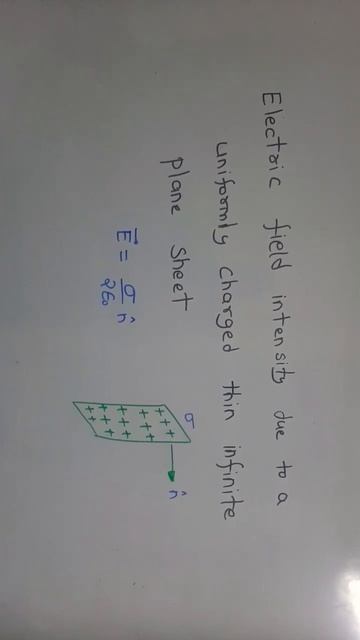 Electric field intensity due to a
uniformly charged thin infinite
plane sheet
E⃗ = σ/2ε₀ n̂
σ
+ + +
+ + +
+ + +
+ + +
+ + +
n̂